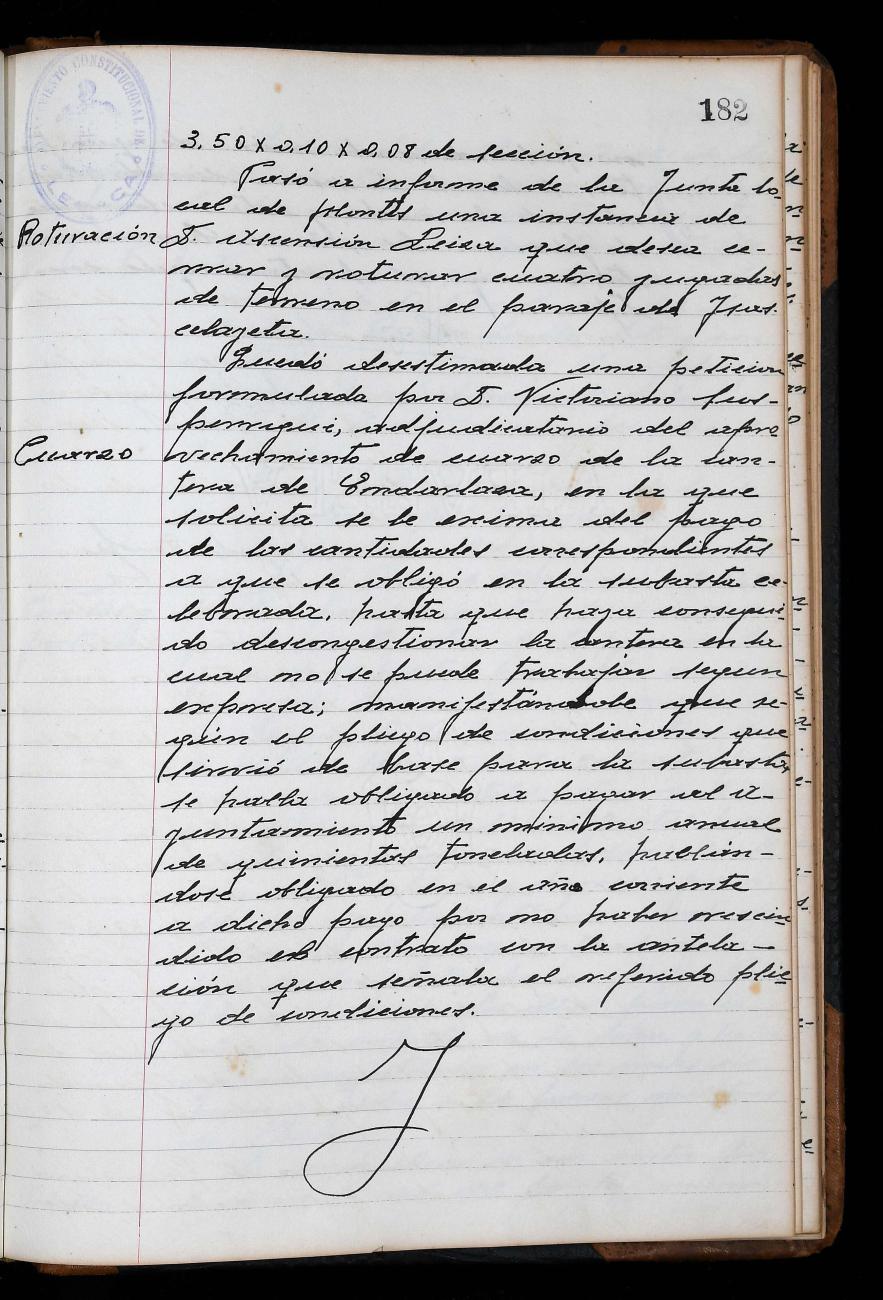 182
3,50 x 0,10 x 0,08 de sección.
Pasó a informe de la Junta lo-
cal de Montes una instancia de
Roturación
D. Ascensión Leiza que desea ce-
rrar y roturar cuatro yugadas
de terreno en el paraje de Isas-
celayeta.
Quedó desestimada una peticion
formulada por D. Victoriano Sus-
perregui, adjudicatario del apro-
Cuarzo
vechamiento de cuarzo de la can-
tera de Endarlaza, en la que
solicita se le exima del pago
de las cantidades correspondientes
a que se obligó en la subasta ce-
lebrada, hasta que haya consegui-
do descongestionar la cantera en la
cual no se puede trabajar segun
expresa; manifestándole que se-
gún el pliego de condiciones que
sirvió de base para la subasta
se halla obligado a pagar al A-
yuntamiento un minimo anual
de quinientas toneladas, hallán-
dose obligado en el año corriente
a dicho pago por no haber rescin-
dido el contrato con la antela-
ción que señala el referido plie-
go de condiciones.